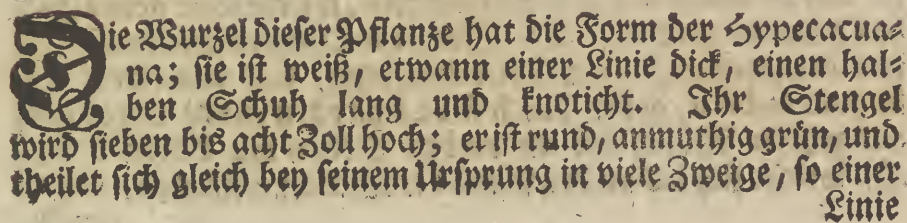 Die Wurzel dieser Pflanze hat die Form der Hypecacua⸗
na; sie ist weiß, etwann einer Linie dick, einen hal⸗
ben Schuh lang und knoticht. Ihr Stengel
wird sieben bis acht Zoll hoch; er ist rund, anmuthig grün, und
theilet sich gleich bey seinem Ursprung in viele Zweige, so einer
Linie